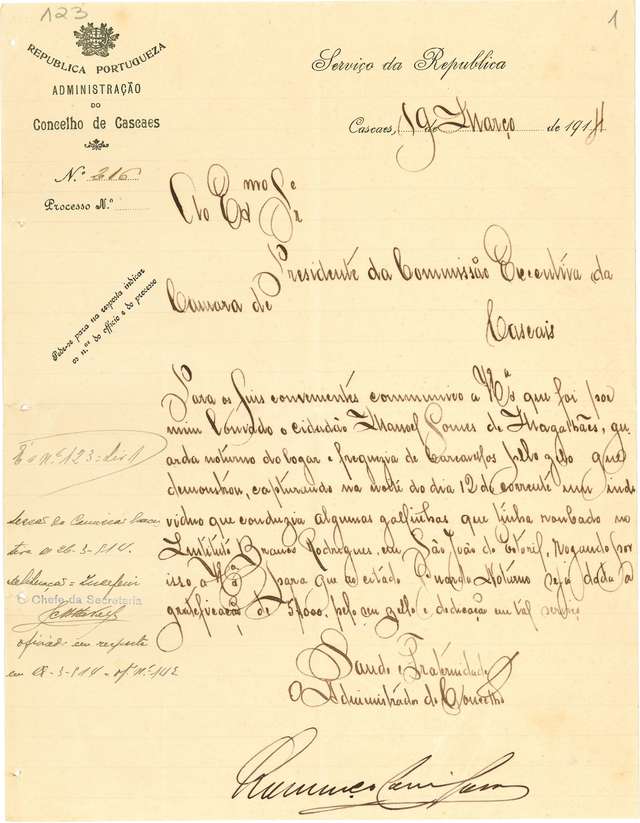 123
1
REPUBLICA PORTUGUEZA
ADMINISTRAÇÃO
DO
Concelho de Cascaes
N.º 216
Processo N.º
Pede-se para na resposta indicar
os n.os do officio e do processo
Serviço da Republica
Cascaes, 19 de Março de 1914
Ao Exmo Snr
Presidente da Commissão Executiva da
Camara de
Cascais
Para os fins convenientes communico a V.ª que foi por
mim louvado o cidadão Manoel Gomes de Magalhães, gu-
arda noturno do logar e freguezia de Carcavelos pelo zelo que
demonstrou, capturando na noite do dia 12 do corrente um indi-
viduo que conduzia algumas gallinhas que tinha roubado no
Instituto Branco Rodrigues, em São João do Estoril, rogando por
isso a V.ª para que ao citado Guarda Noturno seja dada a
gratificação de 5$000, pelo seu zelo e dedicação em tal serviço
Saude e Fraternidade
O Administrador do Concelho
E n.º 123 = Liv. 1
de 26-3-914.
O Chefe da Secretaria
officiado em resposta
em 28-3-914 = of.º n.º 142